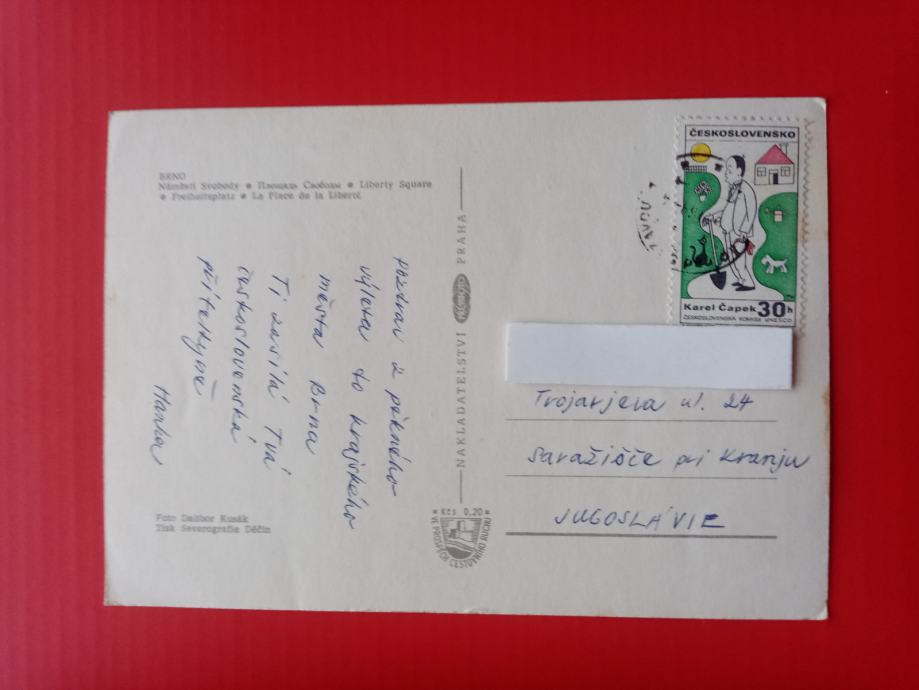 BRNO
Náměstí Svobody • Площадь Свободы • Liberty Square
• Freiheitsplatz • La Place de la Liberté
pozdrav z pěkného
výletu to krajského
města Brna
Ti zasílá Tvá
československá
přítelkyně
Hanka
Foto Dalibor Kusák
Tisk Severografia Děčín
NAKLADATELSTVÍ PRESSFOTO PRAHA
• Kčs 0,20 •
VE PROSPĚCH CESTOVNÍHO RUCHU
ČESKOSLOVENSKO
Karel Čapek 30h
ČESKOSLOVENSKÁ KOMISE UNESCO
Trojarjeva ul. 24
Saražišče pri Kranju
JUGOSLÁVIE